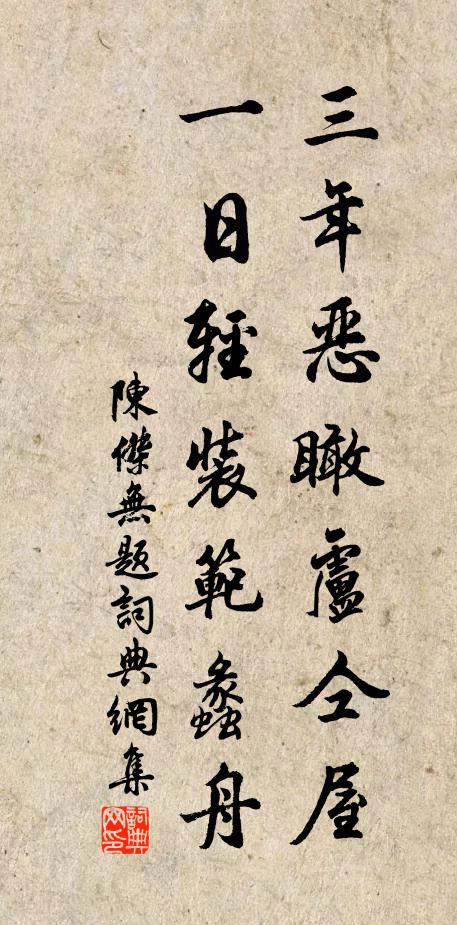 三年惡瞰盧仝屋
一日輕裝範蠡舟
陳傑無題詞典網集
詞典網印